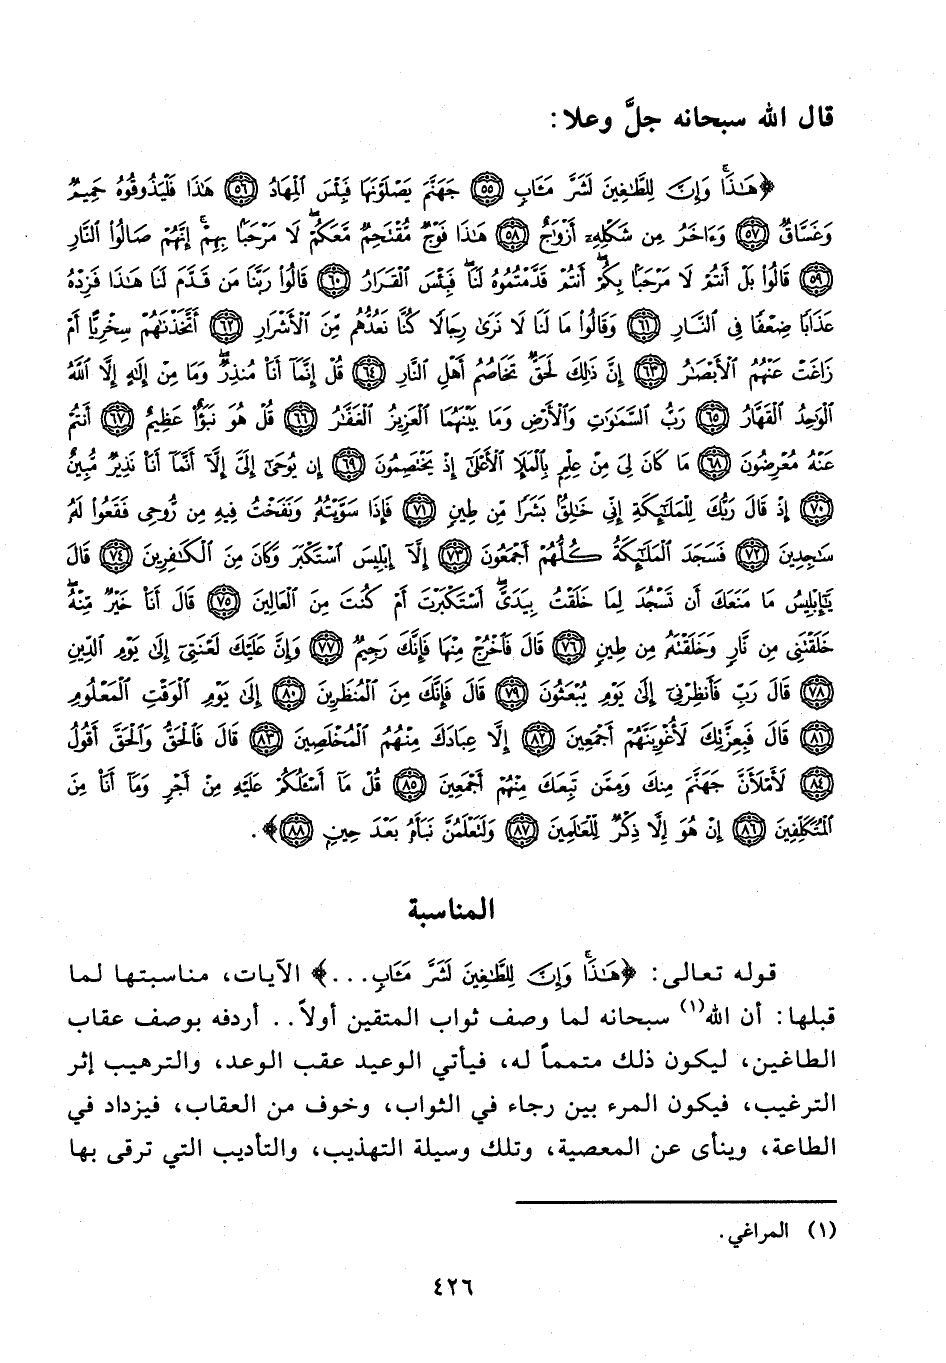 قال الله سبحانه جلَّ وعلا:
﴿هَٰذَا ۚ وَإِنَّ لِلطَّٰغِينَ لَشَرَّ مَـَٔابٍ ٥٥ جَهَنَّمَ يَصْلَوْنَهَا فَبِئْسَ ٱلْمِهَادُ ٥٦ هَٰذَا فَلْيَذُوقُوهُ حَمِيمٌ
وَغَسَّاقٌ ٥٧ وَءَاخَرُ مِن شَكْلِهِۦٓ أَزْوَٰجٌ ٥٨ هَٰذَا فَوْجٌ مُّقْتَحِمٌ مَّعَكُمْ ۖ لَا مَرْحَبًۢا بِهِمْ ۚ إِنَّهُمْ صَالُوا۟ ٱلنَّارِ
٥٩ قَالُوا۟ بَلْ أَنتُمْ لَا مَرْحَبًۢا بِكُمْ ۖ أَنتُمْ قَدَّمْتُمُوهُ لَنَا ۖ فَبِئْسَ ٱلْقَرَارُ ٦٠ قَالُوا۟ رَبَّنَا مَن قَدَّمَ لَنَا هَٰذَا فَزِدْهُ
عَذَابًا ضِعْفًا فِى ٱلنَّارِ ٦١ وَقَالُوا۟ مَا لَنَا لَا نَرَىٰ رِجَالًا كُنَّا نَعُدُّهُم مِّنَ ٱلْأَشْرَارِ ٦٢ أَتَّخَذْنَٰهُمْ سِخْرِيًّا أَمْ
زَاغَتْ عَنْهُمُ ٱلْأَبْصَٰرُ ٦٣ إِنَّ ذَٰلِكَ لَحَقٌّ تَخَاصُمُ أَهْلِ ٱلنَّارِ ٦٤ قُلْ إِنَّمَآ أَنَا۠ مُنذِرٌ ۖ وَمَا مِنْ إِلَٰهٍ إِلَّا ٱللَّهُ
ٱلْوَٰحِدُ ٱلْقَهَّارُ ٦٥ رَبُّ ٱلسَّمَٰوَٰتِ وَٱلْأَرْضِ وَمَا بَيْنَهُمَا ٱلْعَزِيزُ ٱلْغَفَّٰرُ ٦٦ قُلْ هُوَ نَبَؤٌا۟ عَظِيمٌ ٦٧ أَنتُمْ
عَنْهُ مُعْرِضُونَ ٦٨ مَا كَانَ لِىَ مِنْ عِلْمٍۭ بِٱلْمَلَإِ ٱلْأَعْلَىٰٓ إِذْ يَخْتَصِمُونَ ٦٩ إِن يُوحَىٰٓ إِلَىَّ إِلَّآ أَنَّمَآ أَنَا۠ نَذِيرٌ مُّبِينٌ
٧٠ إِذْ قَالَ رَبُّكَ لِلْمَلَٰٓئِكَةِ إِنِّى خَٰلِقٌۢ بَشَرًا مِّن طِينٍ ٧١ فَإِذَا سَوَّيْتُهُۥ وَنَفَخْتُ فِيهِ مِن رُّوحِى فَقَعُوا۟ لَهُۥ
سَٰجِدِينَ ٧٢ فَسَجَدَ ٱلْمَلَٰٓئِكَةُ كُلُّهُمْ أَجْمَعُونَ ٧٣ إِلَّآ إِبْلِيسَ ٱسْتَكْبَرَ وَكَانَ مِنَ ٱلْكَٰفِرِينَ ٧٤ قَالَ
يَٰٓإِبْلِيسُ مَا مَنَعَكَ أَن تَسْجُدَ لِمَا خَلَقْتُ بِيَدَىَّ ۖ أَسْتَكْبَرْتَ أَمْ كُنتَ مِنَ ٱلْعَالِينَ ٧٥ قَالَ أَنَا۠ خَيْرٌ مِّنْهُ ۖ
خَلَقْتَنِى مِن نَّارٍ وَخَلَقْتَهُۥ مِن طِينٍ ٧٦ قَالَ فَٱخْرُجْ مِنْهَا فَإِنَّكَ رَجِيمٌ ٧٧ وَإِنَّ عَلَيْكَ لَعْنَتِىٓ إِلَىٰ يَوْمِ ٱلدِّينِ
٧٨ قَالَ رَبِّ فَأَنظِرْنِىٓ إِلَىٰ يَوْمِ يُبْعَثُونَ ٧٩ قَالَ فَإِنَّكَ مِنَ ٱلْمُنظَرِينَ ٨٠ إِلَىٰ يَوْمِ ٱلْوَقْتِ ٱلْمَعْلُومِ
٨١ قَالَ فَبِعِزَّتِكَ لَأُغْوِيَنَّهُمْ أَجْمَعِينَ ٨٢ إِلَّا عِبَادَكَ مِنْهُمُ ٱلْمُخْلَصِينَ ٨٣ قَالَ فَٱلْحَقُّ وَٱلْحَقَّ أَقُولُ
٨٤ لَأَمْلَأَنَّ جَهَنَّمَ مِنكَ وَمِمَّن تَبِعَكَ مِنْهُمْ أَجْمَعِينَ ٨٥ قُلْ مَآ أَسْـَٔلُكُمْ عَلَيْهِ مِنْ أَجْرٍ وَمَآ أَنَا۠ مِنَ
ٱلْمُتَكَلِّفِينَ ٨٦ إِنْ هُوَ إِلَّا ذِكْرٌ لِّلْعَٰلَمِينَ ٨٧ وَلَتَعْلَمُنَّ نَبَأَهُۥ بَعْدَ حِينٍۭ ٨٨﴾.
المناسبة
قوله تعالى: ﴿هَٰذَا ۚ وَإِنَّ لِلطَّٰغِينَ لَشَرَّ مَـَٔابٍ...﴾ الآيات، مناسبتها لما
قبلها: أن الله(١) سبحانه لما وصف ثواب المتقين أولاً.. أردفه بوصف عقاب
الطاغين، ليكون ذلك متمماً له، فيأتي الوعيد عقب الوعد، والترهيب إثر
الترغيب، فيكون المرء بين رجاء في الثواب، وخوف من العقاب، فيزداد في
الطاعة، وينأى عن المعصية، وتلك وسيلة التهذيب، والتأديب التي ترقى بها
(١) المراغي.
٤٢٦